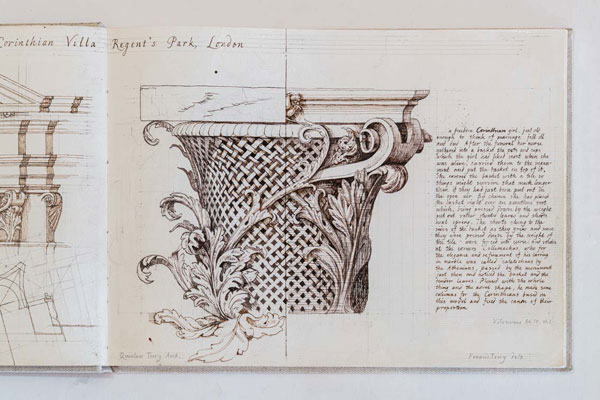 Corinthian Villa Regent's Park, London
a freeborn Corinthian girl, just old
enough to think of marriage fell ill
and died. After the funeral her nurse
collected into a basket the pots and cups
which the girl had liked most when she
was alive, carried them to the monu-
ment and put the basket on top of it,
She covered the basket with a tile so
things might survive that much longer
than if they had just been put out in
the open air. By chance she had placed
the basket right over an acanthus root
which, being pressed down by the weight
put out rather stunted leaves and shoots
next spring. The shoots clung to the
sides of the basket as they grew and since
they were pressed down by the weight of
the tile were forced into curves and volutes
at the corners. Callimachus, who for
the elegance and refinement of his carving
in marble was called catatechnos by
the Athenians, passed by the monument
just then and noticed the basket and the
tender leaves. Pleased with the whole
thing and the novel shape, he made some
columns for the Corinthians based on
this model and fixed the canon of their
proportion.
Vitruvius
Quinlan Terry Arch.
Francis Terry Delt